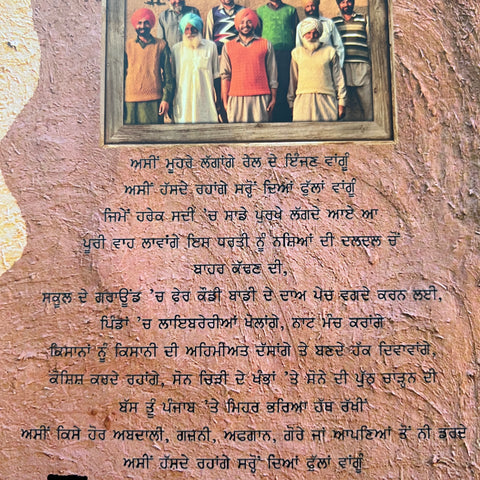 ਅਸੀਂ ਮੂਹਰੇ ਲੱਗਾਂਗੇ ਰੇਲ ਦੇ ਇੰਜਣ ਵਾਂਗੂੰ
ਅਸੀਂ ਹੱਸਦੇ ਰਹਾਂਗੇ ਸਰ੍ਹੋਂ ਦਿਆਂ ਫੁੱਲਾਂ ਵਾਂਗੂੰ
ਜਿਮੇਂ ਹਰੇਕ ਸਦੀ 'ਚ ਸਾਡੇ ਪੁਰਖੇ ਲੱਗਦੇ ਆਏ ਆ
ਪੂਰੀ ਵਾਹ ਲਾਵਾਂਗੇ ਇਸ ਧਰਤੀ ਨੂੰ ਨਸ਼ਿਆਂ ਦੀ ਦਲਦਲ ਚੋਂ
ਬਾਹਰ ਕੱਢਣ ਦੀ,
ਸਕੂਲ ਦੇ ਗਰਾਊਂਡ 'ਚ ਫੇਰ ਕੌਡੀ ਬਾਡੀ ਦੇ ਦਾਅ ਪੇਚ ਵਗਦੇ ਕਰਨ ਲਈ,
ਪਿੰਡਾਂ 'ਚ ਲਾਇਬਰੇਰੀਆਂ ਖੋਲਾਂਗੇ, ਨਾਟ ਮੰਚ ਕਰਾਂਗੇ
ਕਿਸਾਨਾਂ ਨੂੰ ਕਿਸਾਨੀ ਦੀ ਅਹਿਮੀਅਤ ਦੱਸਾਂਗੇ ਤੇ ਬਣਦੇ ਹੱਕ ਦਿਵਾਵਾਂਗੇ,
ਕੋਸ਼ਿਸ਼ ਕਰਦੇ ਰਹਾਂਗੇ, ਸੋਨ ਚਿੜੀ ਦੇ ਖੰਭਾਂ 'ਤੇ ਸੋਨੇ ਦੀ ਪੁੱਠ ਚਾੜ੍ਹਨ ਦੀ
ਬੱਸ ਤੂੰ ਪੰਜਾਬ 'ਤੇ ਮਿਹਰ ਭਰਿਆ ਹੱਥ ਰੱਖੀਂ
ਅਸੀਂ ਕਿਸੇ ਹੋਰ ਅਬਦਾਲੀ, ਗਜ਼ਨੀ, ਅਫਗਾਨ, ਗੋਰੇ ਜਾਂ ਆਪਣਿਆਂ ਤੋਂ ਨੀ ਡਰਦੇ
ਅਸੀਂ ਹੱਸਦੇ ਰਹਾਂਗੇ ਸਰ੍ਹੋਂ ਦਿਆਂ ਫੁੱਲਾਂ ਵਾਂਗੂੰ